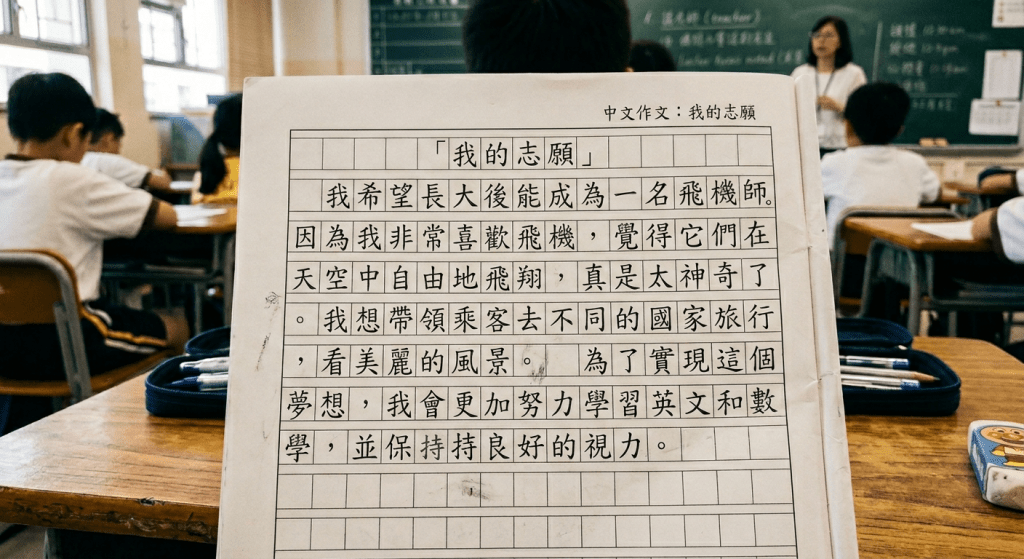 中文作文：我的志願
「我的志願」
我希望長大後能成為一名飛機師。
因為我非常喜歡飛機，覺得它們在
天空中自由地飛翔，真是太神奇了
。我想帶領乘客去不同的國家旅行
，看美麗的風景。 為了實現這個
夢想，我會更加努力學習英文和數
學，並保持持良好的視力。